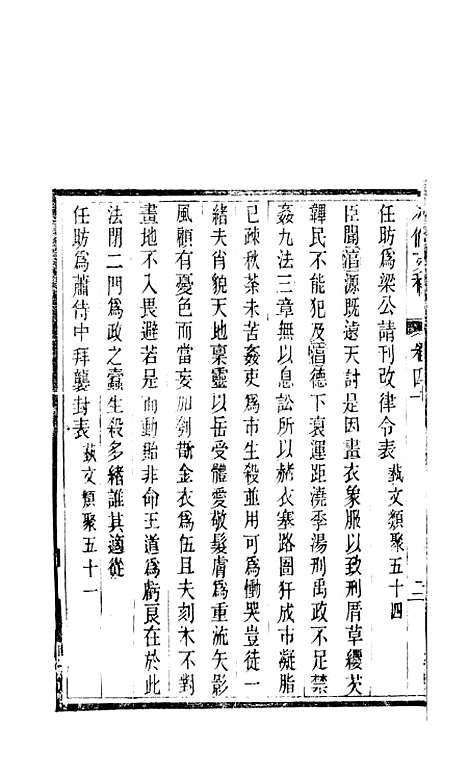 任昉爲梁公請刊改律令表 蓺文類聚五十四
臣聞淳源既遠天討是因畫衣象服以致刑厝草纓艾
韠民不能犯及淳德下衰運距澆季湯刑禹政不足禁
姦九法三章無以息訟所以赭衣塞路圄犴成市凝脂
已疎秋荼未苦姦吏爲市生殺並用可爲慟哭豈徒一
緒夫肖貌天地稟靈以岳受體愛敬髮膚爲重流矢影
風顧有憂色而當妄加刳斮金衣爲伍且夫刻木不對
畫地不入畏避若是而動貽非命王道爲虧良在於此
法開二門爲政之蠧生殺多緒誰其適從
任昉爲蕭侍中拜襲封表 蓺文類聚五十一
卷四十
二